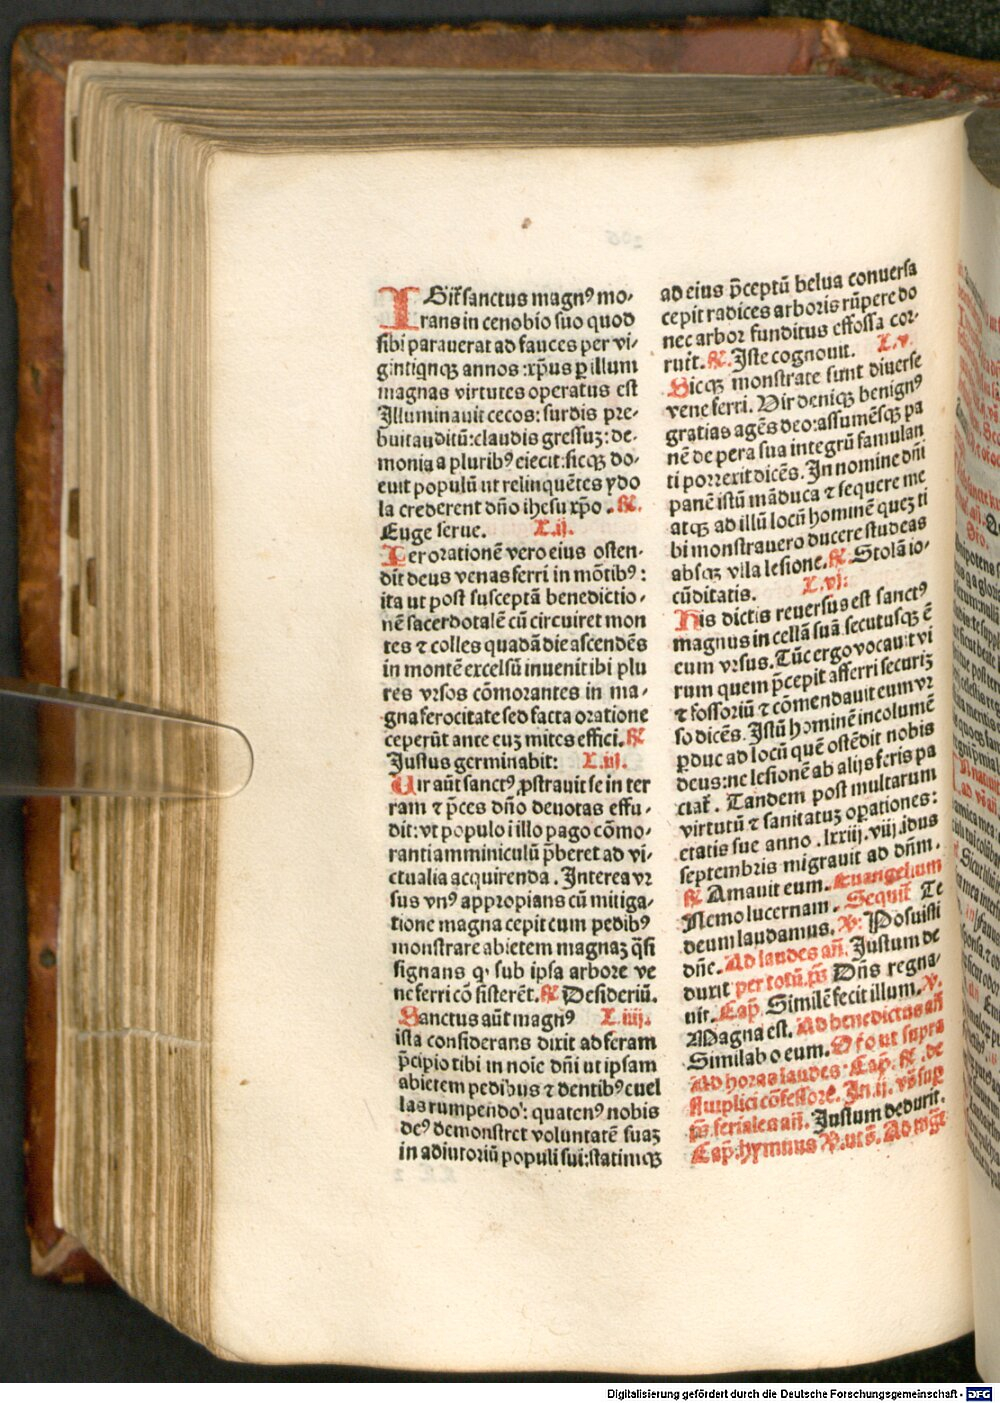 IGit᷑ sanctus magnꝰ mo-
rans in cenobio suo quod
sibi parauerat ad fauces per vi-
gintiqnqꝫ annos : xp̄us ꝑ illum
magnas virtutes operatus est
Illuminauit cecos: surdis pre-
buit auditū: claudis gressuꝫ: de-
monia a pluribꝰ eiecit: sicqꝫ do-
cuit populū ut relinquētes ydo
la crederent dn̄o ihesu xp̄o . ℟.
Euge serue. L.ij.
Per orationē vero eius osten-
dit deus venas ferri in mōtibꝰ :
ita ut post susceptā benedictio-
nē sacerdotalē cū circuiret mon
tes ⁊ colles quadā die ascendēs
in montē excelsū inuenit ibi plu
res vrsos cōmorantes in ma-
gna ferocitate sed facta oratione
ceperūt ante euꝫ mites effici. ℟
Justus germinabit: L.iij.
Uir aūt sanctꝰ ꝓstrauit se in ter
ram ⁊ p̄ces dn̄o deuotas effu-
dit: vt populo i illo pago cōmo-
ranti amminiculū p̄beret ad vi-
ctualia acquirenda . Interea vr
sus vnꝰ appropians cū mitiga-
tione magna cepit cum pedibꝰ
monstrare abietem magnaꝫ q̄si
signans ꝙ sub ipsa arbore ve
ne ferri cō sisterēt. ℟ Desideriū.
Sanctus aūt magnꝰ L.iiij.
ista considerans dixit ad feram
p̄cipio tibi in noīe dn̄i ut ipsam
abietem pedibus ⁊ dentibꝰ euel
las rumpendo: quatenꝰ nobis
deꝰ demonstret voluntatē suaꝫ
in adiutoriū populi sui: statimqꝫ
ad eius p̄ceptū belua conuersa
cepit radices arboris rūpere do
nec arbor funditus effossa cor-
ruit. ℟. Iste cognouit. L.v.
Sicqꝫ monstrate sunt diuerse
vene ferri. Vir deniqꝫ benignꝰ
gratias agēs deo: assumēsqꝫ pa
nē de pera sua integrū famulan
ti porrexit dicēs. In nomine dn̄i
panē istū māduca ⁊ sequere me
atqꝫ ad illū locū hominē queꝫ ti
bi monstrauero ducere studeas
absqꝫ vlla lesione. ℟ Stolā io-
cūditatis. L.vj:
His dictis reuersus est sanctꝰ
magnus in cellā suā secutusqꝫ ē
eum vrsus. Tūc ergo vocauit vi
rum quem p̄cepit afferri securiꝫ
⁊ fossoriū ⁊ cōmendauit eum vr
so dicēs. Istū hominē incolumē
ꝑduc ad locū quē ostēdit nobis
deus: ne lesionē ab alijs feris pa
ciat᷑ . Tandem post multarum
virtutū ⁊ sanitatuꝫ oꝑationes:
etatis sue anno . lxxiij. viij. idus
septembris migrauit ad dn̄m.
℟ Amauit eum. Euangelium
Nemo lucernam. Sequit᷑ Te
deum laudamus. ℣: Posuisti
dn̄e. Ad laudes an̄. Justum de
duxit per totū. p̄s Dn̄s regna-
uit. Cap̄. Similē fecit illum. ℣.
Magna est. Ad benedictus an̄
Similabo eum. Oro ut supra
Ad horas laudes: Cap̄. ℟. de
simplici cōfessore. In ij. vs̄ sup̄
ps̄ feriales an̄. Justum deduxit.
Cap̄. hymnus ℣. ut s̄. Ad mgt̄
Digitalisierung gefördert durch die Deutsche Forschungsgemeinschaft - DFG